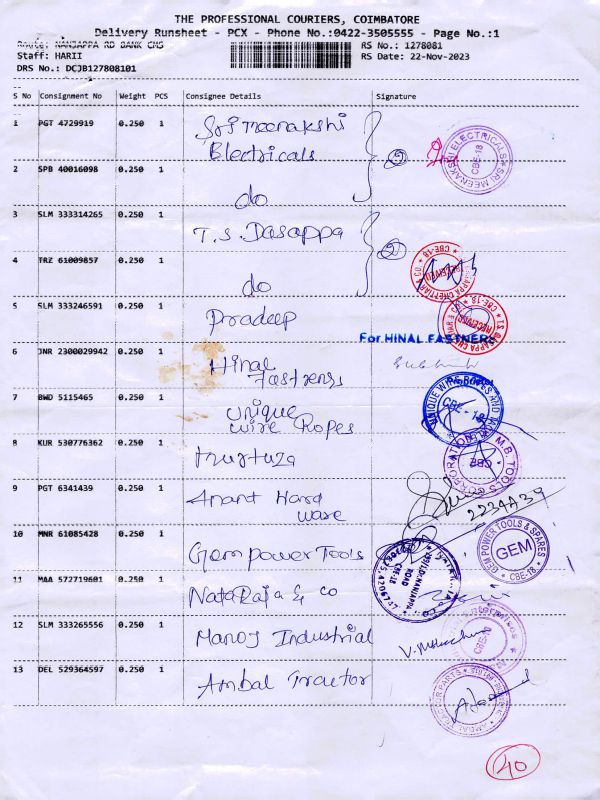 THE PROFESSIONAL COURIERS, COIMBATORE
Delivery Runsheet - PCX - Phone No.:0422-3505555 - Page No.:1
Route: NANJAPPA RD BANK CMS RS No.: 1278081
Staff: HARII RS Date: 22-Nov-2023
DRS No.: DCJB127808101
S No Consignment No Weight PCS Consignee Details Signature
1 PGT 4729919 0.250 1 Sri meenakshi
Electricals
SRI MEENAKSRI ELECTRICALS CBE-18
2 SPB 40016098 0.250 1 do
3 SLM 333314265 0.250 1 T.S. Dasappa
4 TRZ 61009857 0.250 1 do
5 SLM 333246591 0.250 1 Pradeep
For HINAL FASTNERS
6 JNR 2300029942 0.250 1 Hinal
Fastners
7 BWD 5115465 0.250 1 unique
wire Ropes
8 KUR 530776362 0.250 1 murtuza
9 PGT 6341439 0.250 1 Anant Hard
ware
10 MNR 61085428 0.250 1 Gem power Tools
GEM POWER TOOLS & SPARES
GEM
CBE-18
11 MAA 572719601 0.250 1 Nataraja & co
12 SLM 333265556 0.250 1 Manoj Industrial
13 DEL 529364597 0.250 1 Ambal Tractor
40